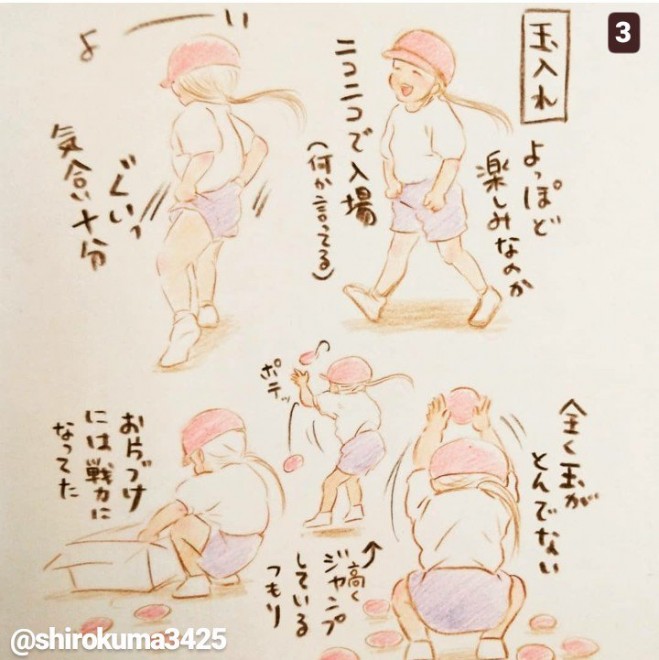 3
玉入れ
よっぽど
楽しみなのか
ニコニコで入場
(何か言ってる)
よーい
ぐいっ
気合い十分
全く玉が
とんでない
ポテッ
↑高く
ジャンプ
している
つもり
お片づけ
には戦力に
なってた
@shirokuma3425